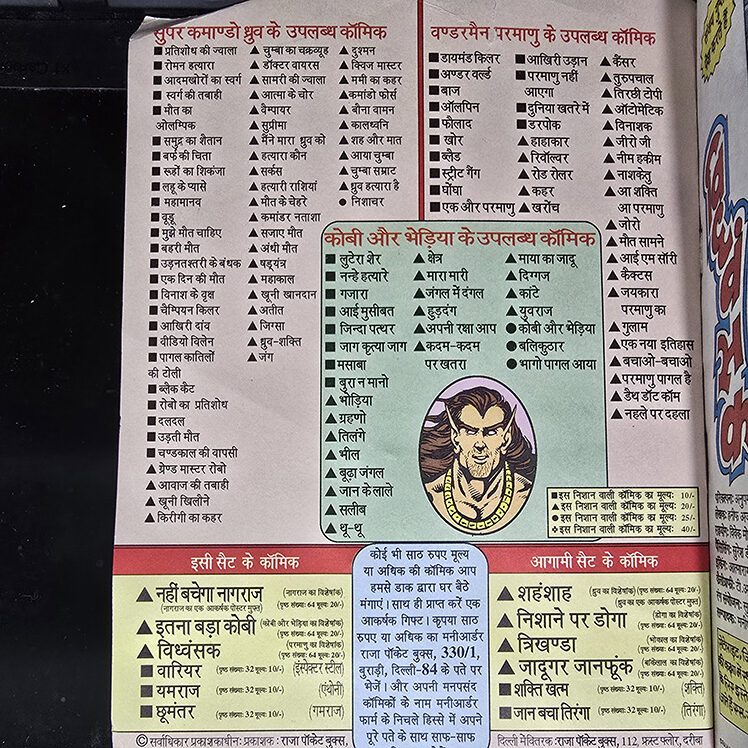 सुपर कमाण्डो ध्रुव के उपलब्ध कॉमिक
■ प्रतिशोध की ज्वाला
■ रोमन हत्यारा
■ आदमखोरों का स्वर्ग
■ स्वर्ग की तबाही
■ मौत का
ओलम्पिक
■ समुद्र का शैतान
■ बर्फ की चिता
■ रूहों का शिकंजा
■ लहू के प्यासे
■ महामानव
■ वूडू
■ मुझे मौत चाहिए
■ बहरी मौत
■ उड़नतश्तरी के बंधक
■ एक दिन की मौत
■ विनाश के वृक्ष
■ चैम्पियन किलर
■ आखिरी दांव
■ वीडियो विलेन
■ पागल कातिलों
की टोली
■ ब्लैक कैट
■ रोबो का प्रतिशोध
■ दलदल
■ उड़ती मौत
■ चण्डकाल की वापसी
▲ ग्रेण्ड मास्टर रोबो
▲ आवाज की तबाही
▲ खूनी खिलौने
▲ किरीगी का कहर
▲ चुम्बा का चक्रव्यूह
▲ डॉक्टर वायरस
▲ सामरी की ज्वाला
▲ आत्मा के चोर
▲ वैम्पायर
▲ सुप्रीमा
▲ मैंने मारा ध्रुव को
▲ हत्यारा कौन
▲ सर्कस
▲ हत्यारी राशियां
▲ मौत के चेहरे
▲ कमांडर नताशा
▲ सजाए मौत
▲ अंधी मौत
▲ षड्यंत्र
▲ महाकाल
▲ खूनी खानदान
▲ अतीत
▲ जिग्सा
▲ ध्रुव-शक्ति
▲ जंग
▲ दुश्मन
▲ क्विज मास्टर
▲ ममी का कहर
▲ कमांडो फोर्स
▲ बौना वामन
▲ कालध्वनि
▲ शह और मात
▲ आया चुम्बा
▲ चुम्बा सम्राट
▲ ध्रुव हत्यारा है
● निशाचर
वण्डरमैन परमाणु के उपलब्ध कॉमिक
■ डायमंड किलर
■ अण्डर वर्ल्ड
■ बाज
■ ऑलपिन
■ फौलाद
■ खोर
■ ब्लैड
■ स्ट्रीट गैंग
■ घोंघा
■ एक और परमाणु
■ आखिरी उड़ान
■ परमाणु नहीं
आएगा
■ दुनिया खतरे में
■ डरपोक
▲ हाहाकार
▲ रिवॉल्वर
▲ रोड रोलर
▲ कहर
▲ खरोंच
▲ कैंसर
▲ तुरुपचाल
▲ तिरछी टोपी
▲ ऑटोमेटिक
▲ विनाशक
▲ जीरो जी
▲ नीम हकीम
▲ नाशकेतु
▲ आ शक्ति
आ परमाणु
▲ जीरो
▲ मौत सामने
▲ आई एम सॉरी
▲ कैक्टस
▲ जयकारा
परमाणु का
▲ गुलाम
▲ एक नया इतिहास
▲ बचाओ-बचाओ
▲ परमाणु पागल है
▲ डैथ डॉट कॉम
▲ नहले पर दहला
कोबी और भेड़िया के उपलब्ध कॉमिक
■ लुटेरा शेर
■ नन्हे हत्यारे
■ गजारा
■ आई मुसीबत
■ जिन्दा पत्थर
■ जाग कृत्या जाग
■ मसाबा
■ बुरा न मानो
▲ भोड़िया
▲ ग्रहणो
▲ तिलंगे
▲ भील
▲ बूढ़ा जंगल
▲ जान के लाले
▲ सलीब
▲ थू-थू
▲ क्षेत्र
▲ मारा मारी
▲ जंगल में दंगल
▲ हुड़दंग
▲ अपनी रक्षा आप
▲ कदम-कदम
पर खतरा
▲ माया का जादू
▲ दिग्गज
▲ कांटे
▲ युवराज
● कोबी और भेड़िया
● बलिकुठार
● भागो पागल आया
■ इस निशान वाली कॉमिक का मूल्य: 10/-
▲ इस निशान वाली कॉमिक का मूल्य: 20/-
● इस निशान वाली कॉमिक का मूल्य: 25/-
✤ इस निशान वाली कॉमिक का मूल्य: 40/-
इसी सैट के कॉमिक
▲ नहीं बचेगा नागराज (नागराज का विशेषांक)
(नागराज का एक आकर्षक पोस्टर मुफ्त) (पृष्ठ संख्या: 64 मूल्य: 20/-)
▲ इतना बड़ा कोबी (कोबी और भेड़िया का विशेषांक)
(पृष्ठ संख्या: 64 मूल्य: 20/-)
▲ विध्वंसक (परमाणु का विशेषांक)
(पृष्ठ संख्या: 64 मूल्य: 20/-)
■ वारियर (पृष्ठ संख्या: 32 मूल्य: 10/-) (इंस्पेक्टर स्टील)
■ यमराज (पृष्ठ संख्या: 32 मूल्य: 10/-) (एंथोनी)
■ छूमंतर (पृष्ठ संख्या: 32 मूल्य: 10/-) (गमराज)
कोई भी साठ रुपए मूल्य
या अधिक की कॉमिक आप
हमसे डाक द्वारा घर बैठे
मंगाएं। साथ ही प्राप्त करें एक
आकर्षक गिफ्ट। कृपया साठ
रुपए या अधिक का मनीआर्डर
राजा पॉकेट बुक्स, 330/1,
बुराड़ी, दिल्ली-84 के पते पर
भेजें। और अपनी मनपसंद
कॉमिकों के नाम मनीआर्डर
फार्म के निचले हिस्से में अपने
पूरे पते के साथ साफ-साफ
आगामी सैट के कॉमिक
▲ शहंशाह (ध्रुव का विशेषांक) (पृष्ठ संख्या: 64 मूल्य: 20/-)
(ध्रुव का एक आकर्षक पोस्टर मुफ्त)
▲ निशाने पर डोगा (डोगा का विशेषांक)
(पृष्ठ संख्या: 64 मूल्य: 20/-)
▲ त्रिखण्डा (भोकाल का विशेषांक)
(पृष्ठ संख्या: 64 मूल्य: 20/-)
▲ जादूगर जानफूंक (बांकेलाल का विशेषांक)
(पृष्ठ संख्या: 64 मूल्य: 20/-)
■ शक्ति खत्म (पृष्ठ संख्या: 32 मूल्य: 10/-) (शक्ति)
■ जान बचा तिरंगा (पृष्ठ संख्या: 32 मूल्य: 10/-) (तिरंगा)
© सर्वाधिकार प्रकाशकाधीन: प्रकाशक : राजा पॉकेट बुक्स,
दिल्ली में वितरक: राजा पॉकेट बुक्स, 112, फर्स्ट फ्लोर, दरीबा